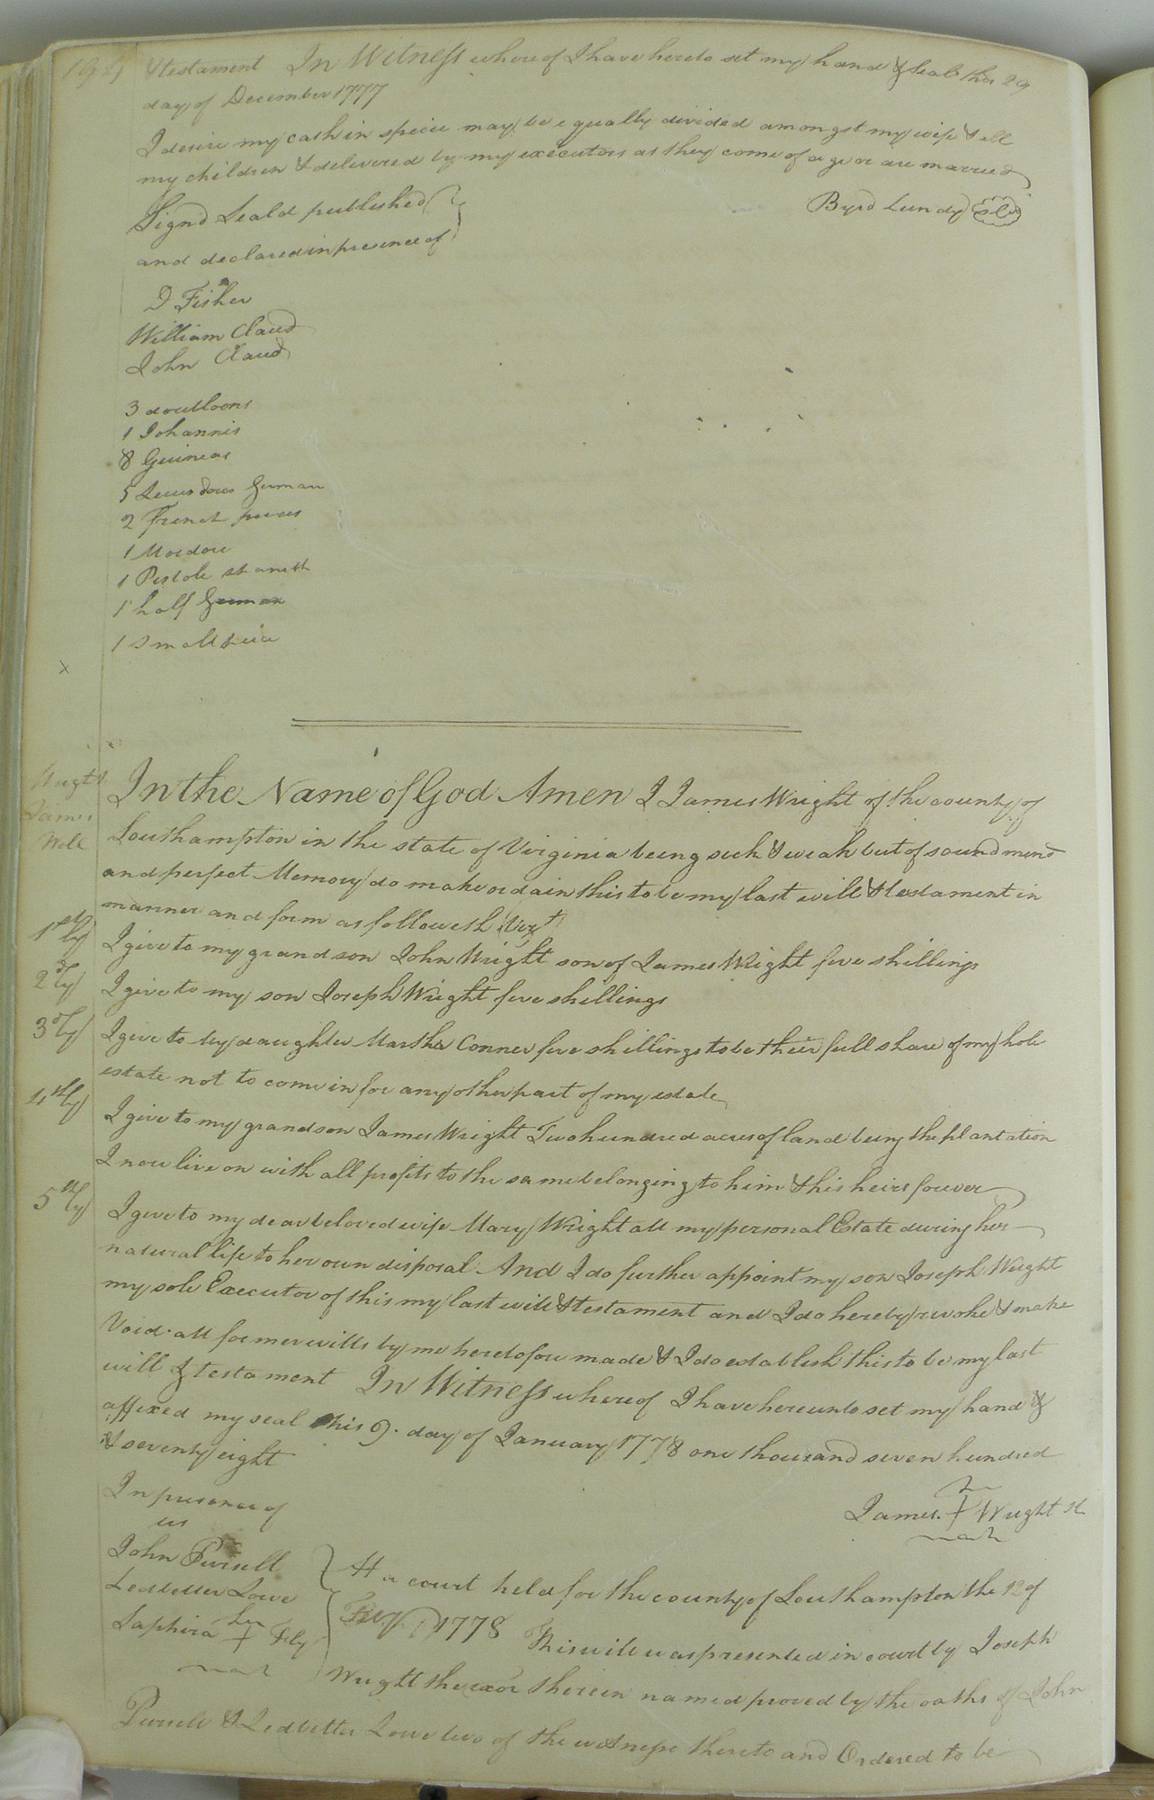 & testament In Witness whereof I have hereto set my hand & seal this 29
day of December 1777
I desire my cash in specie may be equally divided amongst my wife & all
my children & delivered by my executors as they come of age or are married
Signd Seald published
and declared in presence of
Byrd Lundy
D Fisher
William Claud
John Claud
3 doubloons
1 Johannis
8 Guineas
5 Lewis dows German
2 French pieces
1 Moedore
1 Pistole spanish
1 half
1 Small piece
Wright
James
Will
In the Name of God Amen I James Wright of the county of
Southampton in the state of Virginia being sick & weak but of sound mind
and perfect Memory do make ordain this to be my last will & testament in
manner and form as followeth Vizt
1stly I give to my grandson John Wright son of James Wright five shillings
2dly I give to my son Joseph Wright five shillings
3dly I give to my daughter Martha Conner five shillings to be their full share of my hole
estate not to come in for any other part of my estate
4thly I give to my grandson James Wright Two hundred acres of land being the plantation
I now live on with all profits to the same belonging to him & his heirs forever
5thly I give to my dear beloved wife Mary Wright all my personal Estate during her
natural life to her own disposal. And I do further appoint my son Joseph Wright
my sole Executor of this my last will & testament and I do hereby revoke & make
Void all former wills by me heretofore made & I do establish this to be my last
will & testament In Witness whereof I have hereunto set my hand &
affixed my seal this 9. day of January 1778 one thousand seven hundred
& seventy eight
In presence of
us
James + Wright
John Pursell
Ledbetter Lowe
Saphira her + Fly
At a court held for the county of Southampton the 12 of
1778 This will was presented in court by Joseph
Wright the exor therein named proved by the oaths of John
Pursell & Ledbetter Lowe two of the witnesses thereto and Ordered to be